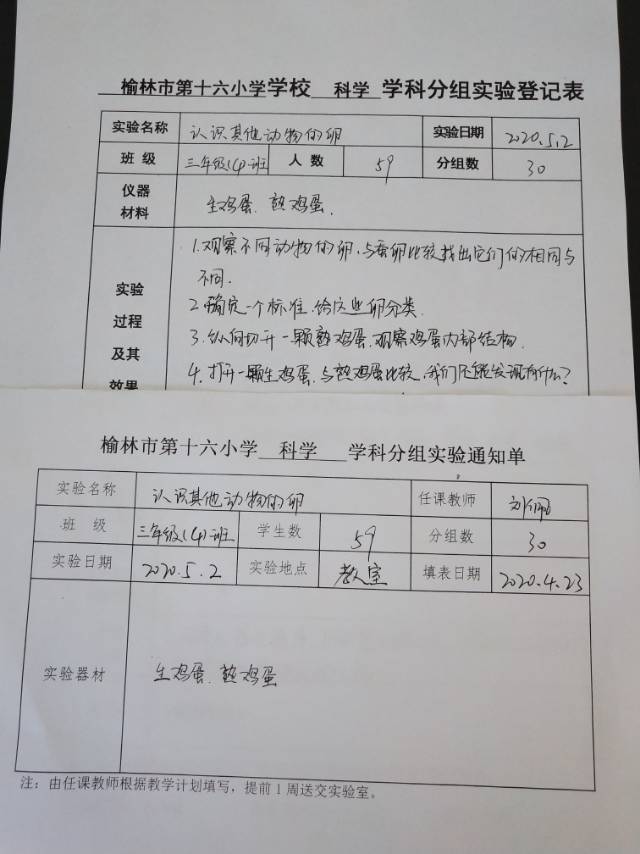 榆林市第十六小学学校 科学 学科分组实验登记表
实验名称 认识其他动物的卵 实验日期 2020.5.2
班 级 三年级(4)班 人 数 59 分组数 30
仪器
材料
生鸡蛋、熟鸡蛋.
实验
过程
及其
效果
1.观察不同动物的卵,与蚕卵比较找出它们的相同与
不同.
2.确定一个标准,给这些卵分类.
3.纵向切开一颗熟鸡蛋,观察鸡蛋内部结构.
4.打开一颗生鸡蛋,与熟鸡蛋比较,我们还能发现有什么?
榆林市第十六小学 科学 学科分组实验通知单
实验名称 认识其他动物的卵 任课教师 刘
班 级 三年级(4)班 学生数 59 分组数 30
实验日期 2020.5.2 实验地点 教室 填表日期 2020.4.23
实验器材 生鸡蛋、熟鸡蛋
注：由任课教师根据教学计划填写，提前1周送交实验室。